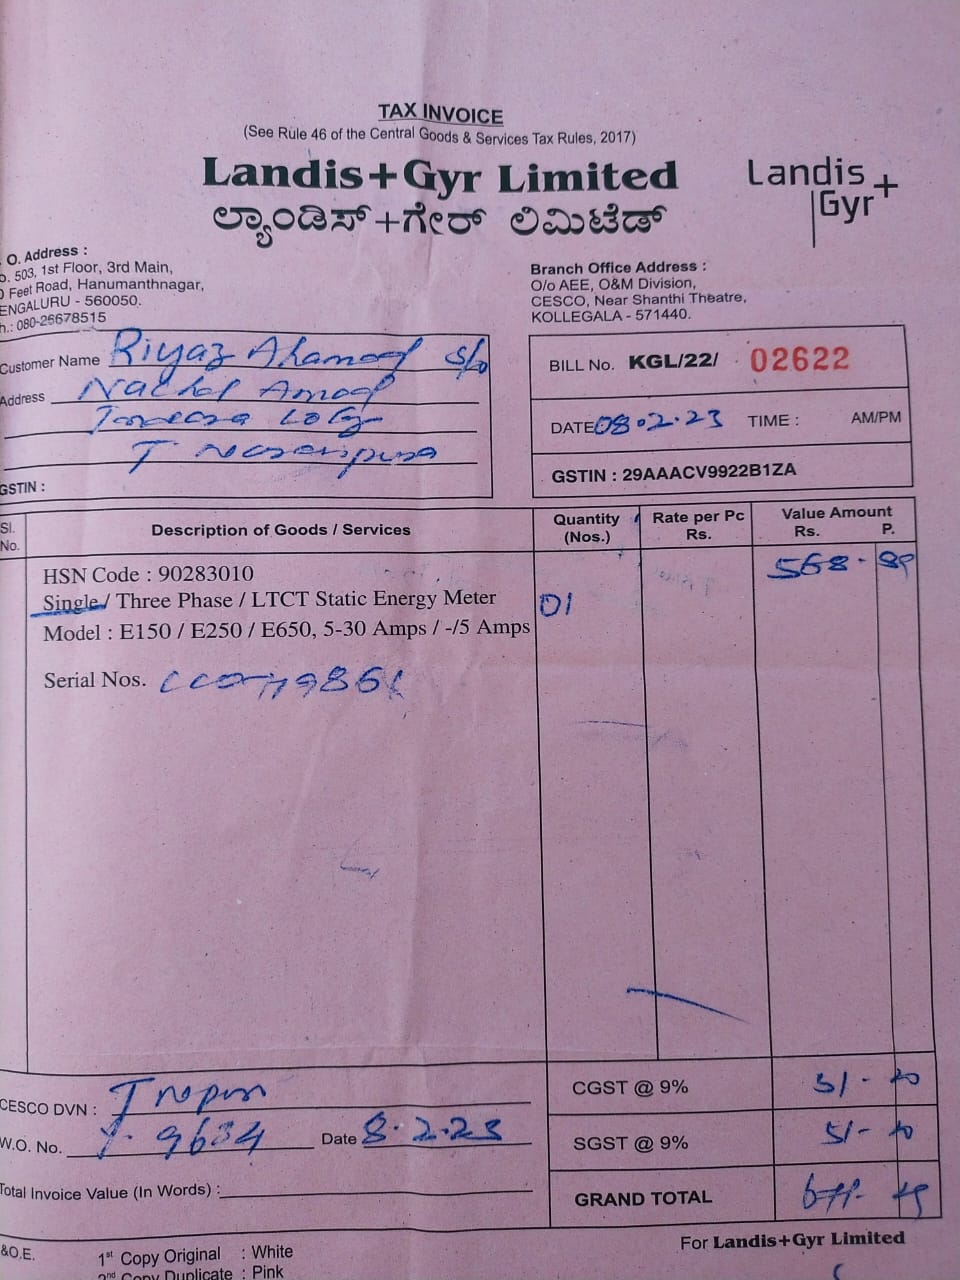 TAX INVOICE
(See Rule 46 of the Central Goods & Services Tax Rules, 2017)
Landis+Gyr Limited
ಲ್ಯಾಂಡಿಸ್+ಗೇರ್ ಲಿಮಿಟೆಡ್
Landis
Gyr+
O. Address :
503, 1st Floor, 3rd Main,
Feet Road, Hanumanthnagar,
ENGALURU - 560050.
h.: 080-26678515
Branch Office Address :
O/o AEE, O&M Division,
CESCO, Near Shanthi Theatre,
KOLLEGALA - 571440.
Customer Name Riyaz Ahamad S/o
Address
T Narasipura
GSTIN :
BILL No. KGL/22/ 02622
DATE 08.2.23 TIME : AM/PM
GSTIN : 29AAACV9922B1ZA
Sl. No. Description of Goods / Services Quantity (Nos.) Rate per Pc Rs. Value Amount Rs. P.
HSN Code : 90283010 568-
Single / Three Phase / LTCT Static Energy Meter 01
Model : E150 / E250 / E650, 5-30 Amps / -/5 Amps
Serial Nos.
CESCO DVN :
CGST @ 9% 51-
W.O. No. 9634 Date 8.2.23
SGST @ 9% 51-
Total Invoice Value (In Words) :
GRAND TOTAL
&O.E.
1st Copy Original : White
2nd Copy Duplicate : Pink
For Landis+Gyr Limited